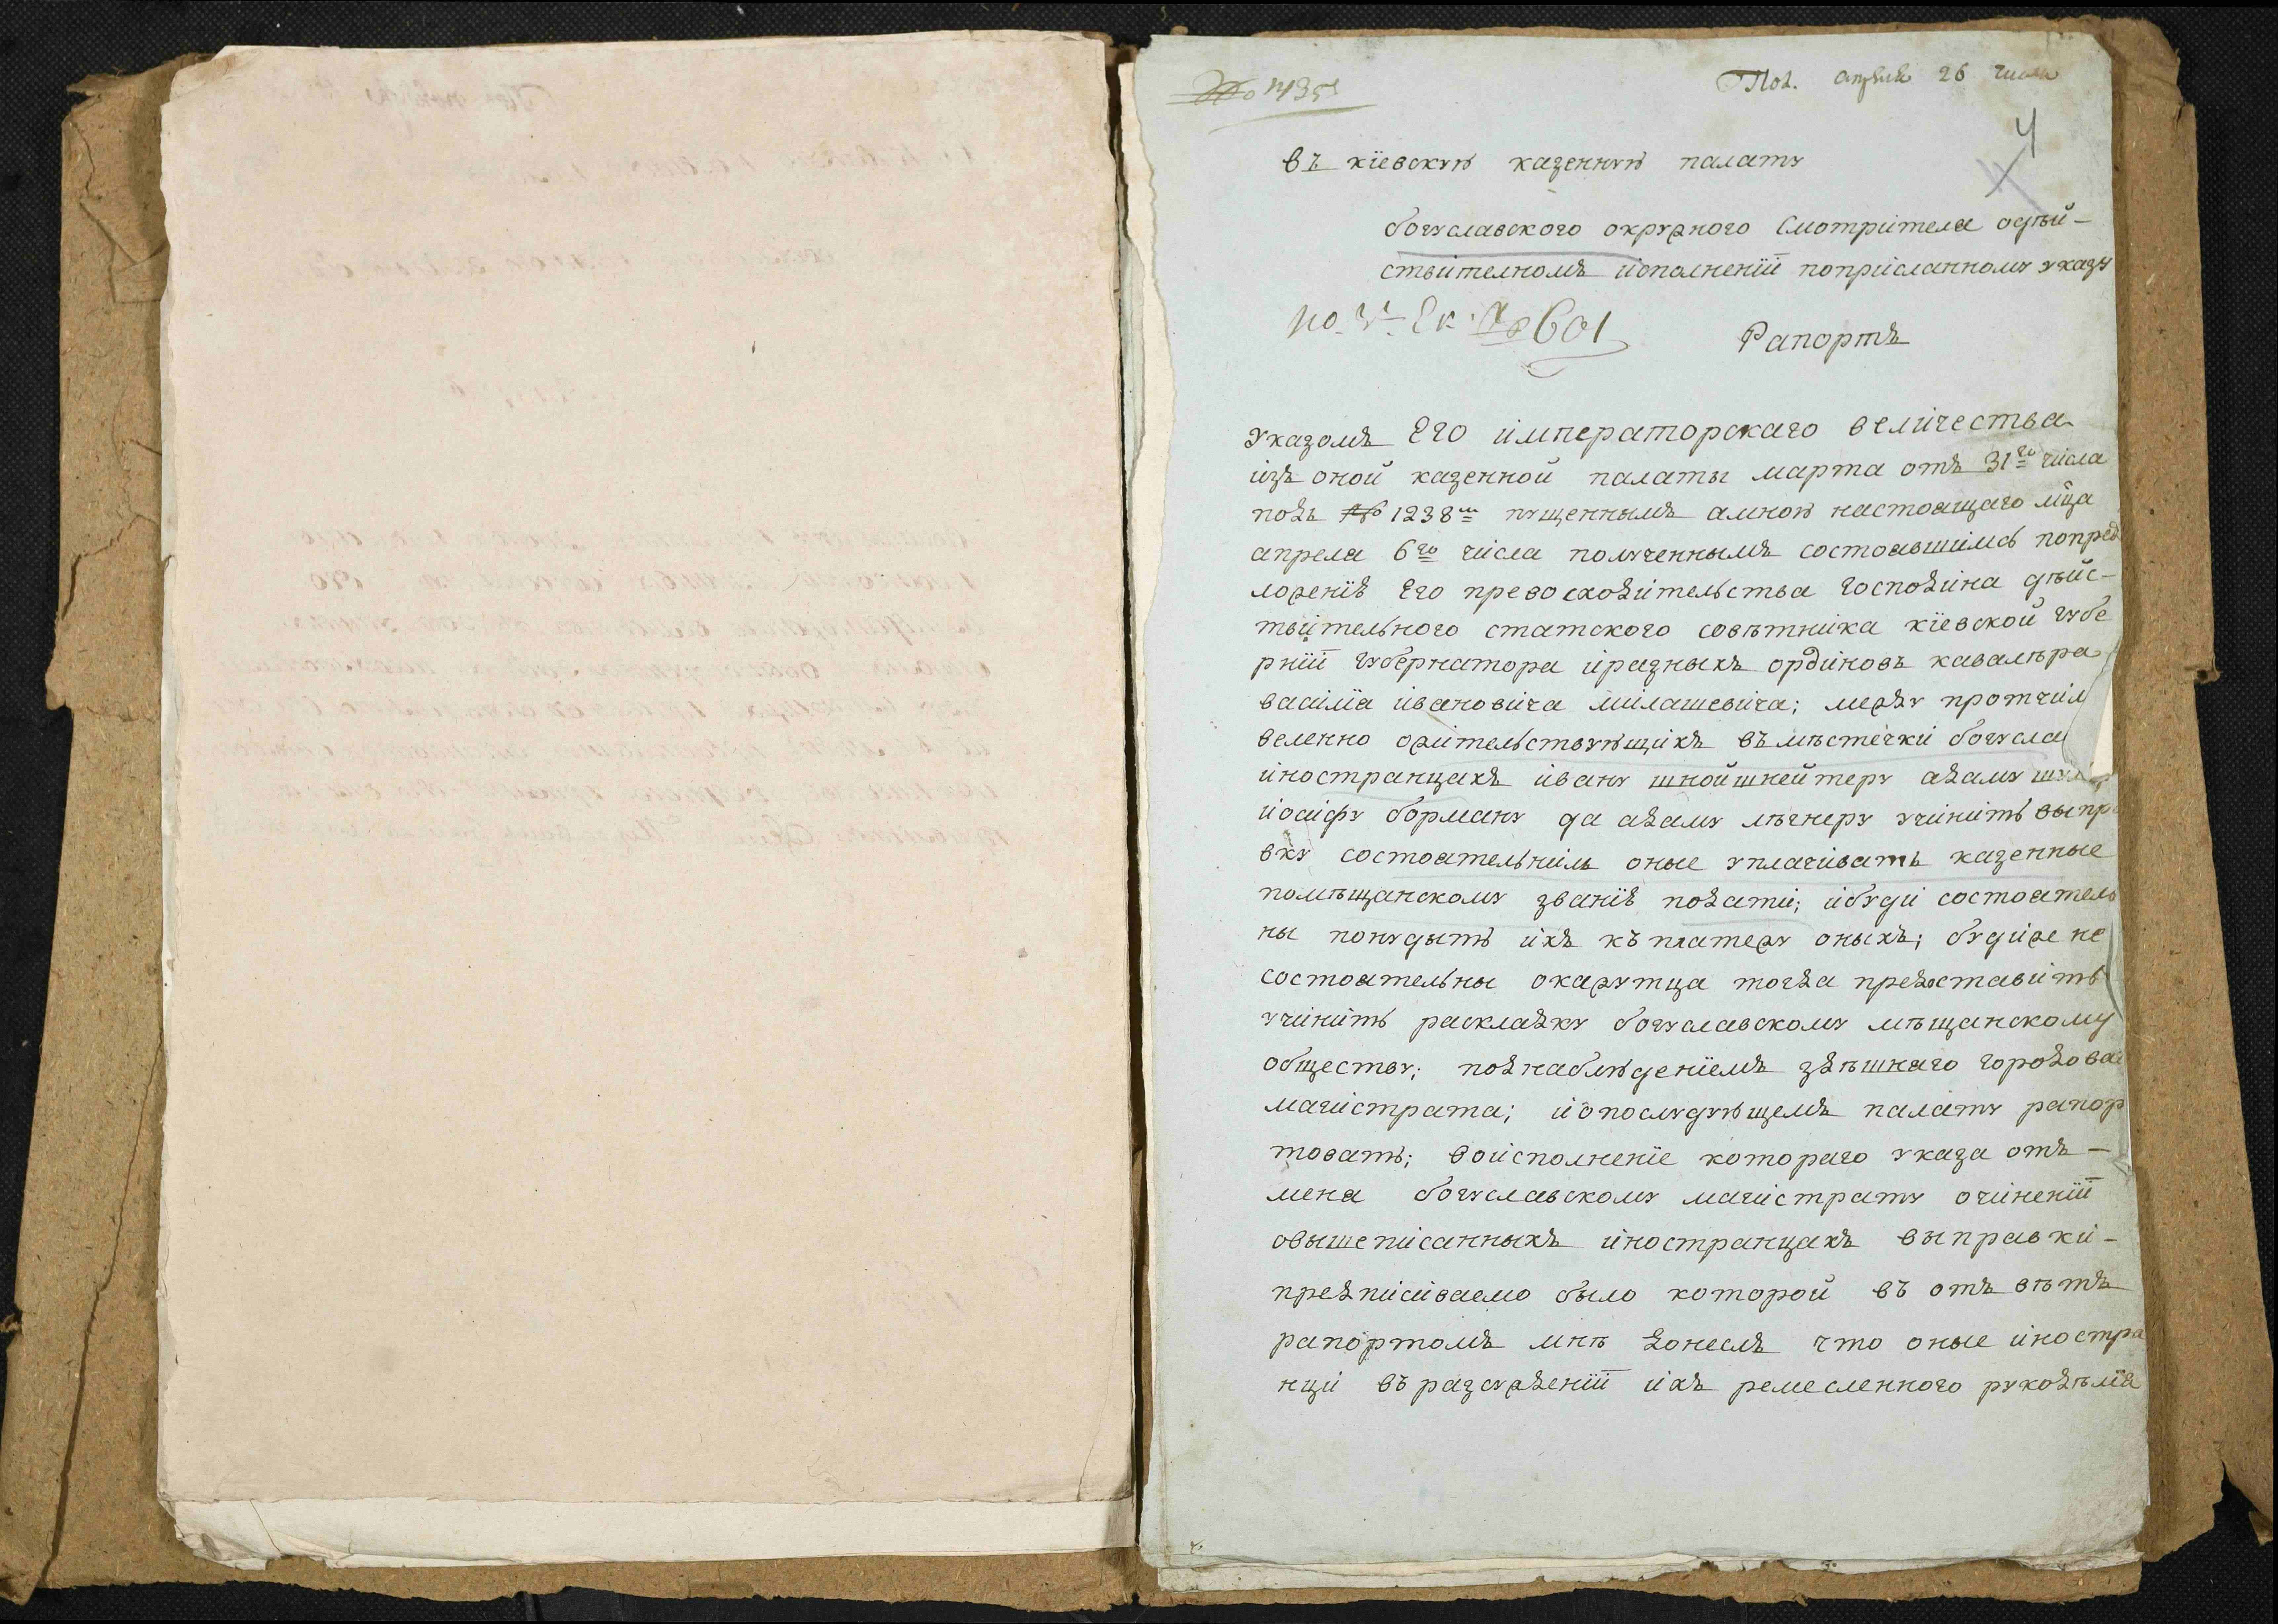 № 1435
Пол. апреля 26 числа
4
въ кїевскую казенную палату
богуславского окружного Смотрителя одѣй-
ствителномъ исполненїй поприсланному указу
по. Ек. № 601
Рапортъ
указомъ Его императорскаго величества
изъ оной казенной палаты марта отъ 31го числа
подъ № 1238м пущеннымъ амною настоящаго мца
апреля 6го числа полученнымъ состоавшимсь попред
ложенїю Его превосходительства господина дѣйс-
твительного статского совѣтника кїевской губе
рнїй губернатора иразныхъ ординовъ кавалѣра
василїа ивановича милашевича; между протчим
веленно ожительствующихъ въ мѣстечки богусла
иностранцахъ ивану шнойшнейтеру адаму
иосифу борману да адаму лѣгнеру учинить выпра
вку состоятельниль оные уплачивать казенные
помѣщанскому званїю подати; ибуди состоятель
ны понудыть ихъ къ платежу оныхъ; будиже не
состоятельны окажутца тогда предоставить
учинить раскладку богуславскому мѣщанскому
обществу; поднаблюденїемъ здѣшнаго городоваг
магистрата; иопослудующемъ палату рапор
товать; воисполненїе котораго указа отъ –
меня богуславскому магистрату очиненїй
овышеписанныхъ иностранцахъ выправки –
предписиваемо было которой въ отъ вѣтъ
рапортомъ мнѣ донеслъ что оные иностра
нци въ разсужденїй ихъ ремесленного рукодѣлїя